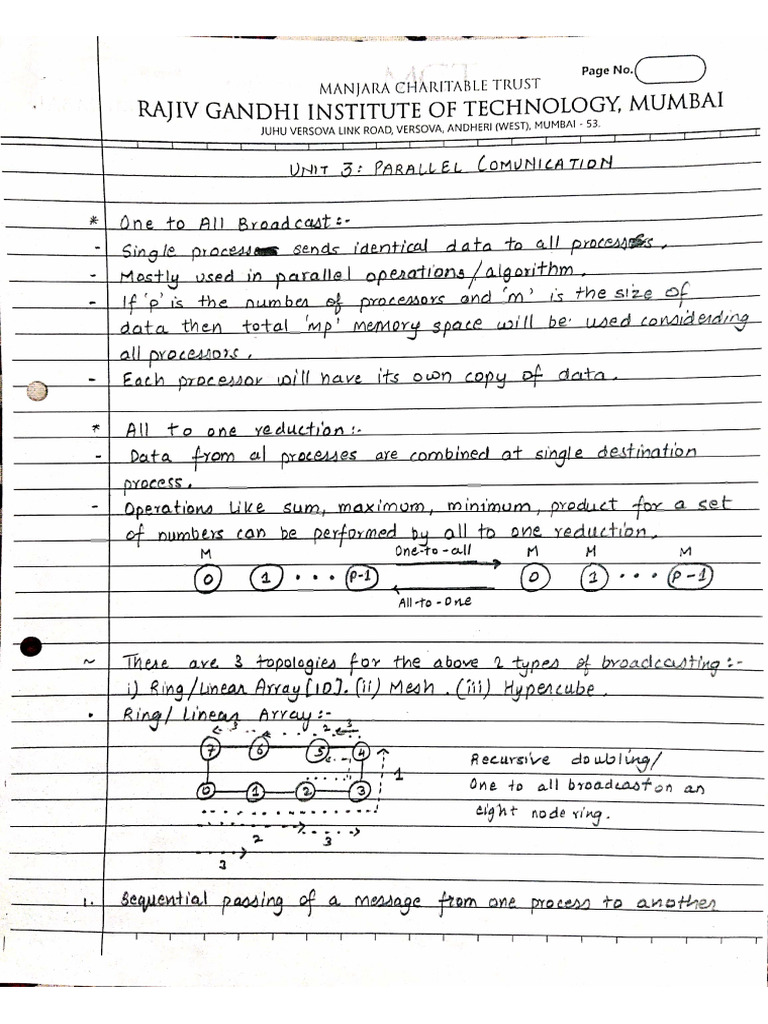 Page No.
MANJARA CHARITABLE TRUST
RAJIV GANDHI INSTITUTE OF TECHNOLOGY, MUMBAI
JUHU VERSOVA LINK ROAD, VERSOVA, ANDHERI (WEST), MUMBAI - 53.
UNIT 3: PARALLEL COMUNICATION
* One to All Broadcast:-
- Single process sends identical data to all process.
- Mostly used in parallel operations/algorithm.
- If 'p' is the number of processors and 'm' is the size of
data then total 'mp' memory space will be used considerding
all processors.
- Each processor will have its own copy of data.
* All to one reduction:-
- Data from al processes are combined at single destination
process.
- Operations like sum, maximum, minimum, product for a set
of numbers can be performed by all to one reduction.
M One-to-all M M M
0 1 ... P-1 0 1 ... P-1
All-to-One
~ These are 3 topologies for the above 2 types of broadcasting:-
i) Ring/Linear Array[1D]. (ii) Mesh. (iii) Hypercube.
• Ring/Linear Array:-
3 2 3
7 6 5 4
1
0 1 2 3
2 3
3
Recursive doubling/
One to all broadcast on an
eight node ring.
1. Sequential passing of a message from one process to another